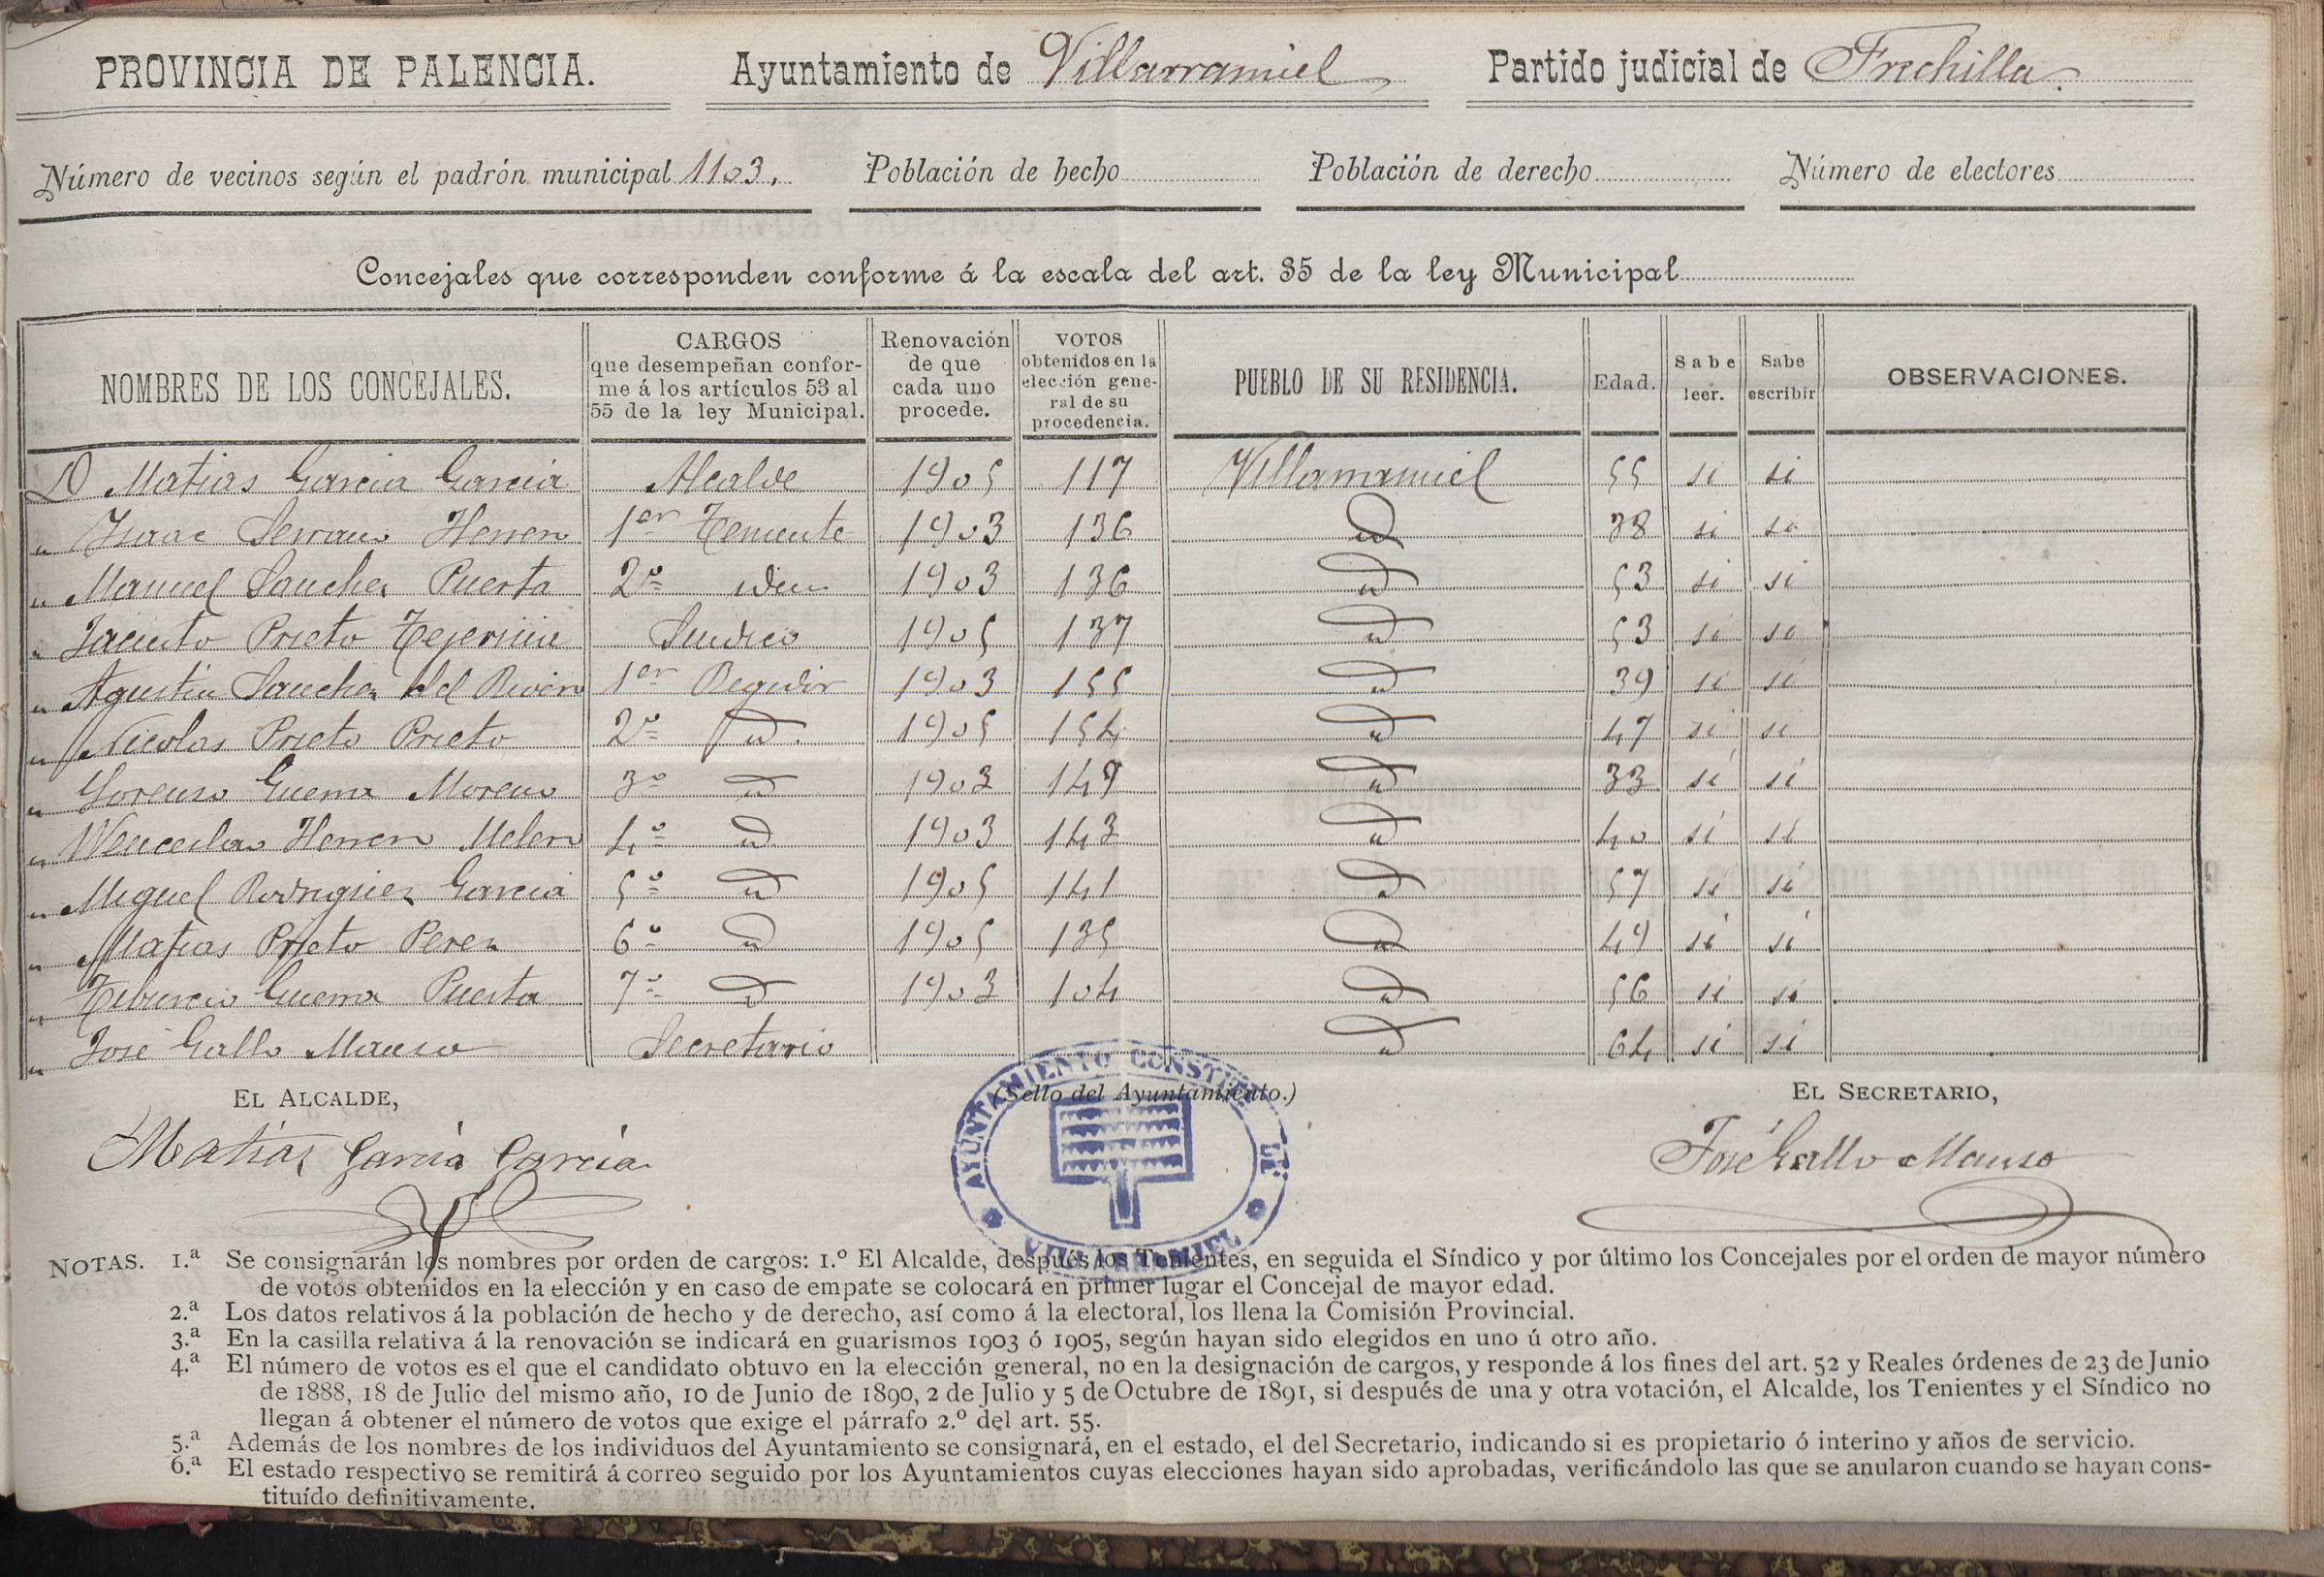 PROVINCIA DE PALENCIA. Ayuntamiento de Villarramiel Partido judicial de Frechilla.
Número de vecinos según el padrón municipal 1103. Población de hecho Población de derecho Número de electores
Concejales que corresponden conforme á la escala del art. 35 de la ley Municipal
NOMBRES DE LOS CONCEJALES. CARGOS que desempeñan conforme á los artículos 53 al 55 de la ley Municipal. Renovación de que cada uno procede. VOTOS obtenidos en la elección general de su procedencia. PUEBLO DE SU RESIDENCIA. Edad. Sabe leer. Sabe escribir OBSERVACIONES.
D Matias Garcia Garcia Alcalde 1905 117 Villarramiel 55 si si
" Isaac Serrano Herrero 1er Teniente 1903 136 id 38 si si
" Manuel Sanchez Puerta 2º idem 1903 136 id 53 si si
" Jacinto Prieto Tejerina Sindico 1905 137 id 53 si si
" Agustin Sanchez del Rivero 1er Regidor 1903 155 id 39 si si
" Nicolas Prieto Prieto 2º id. 1905 154 id 47 si si
" Lorenzo Guerra Moreno 3º id 1903 149 id 33 si si
" Wenceslao Herrero Melero 4º id 1903 143 id 40 si si
" Miguel Rodriguez Garcia 5º id 1905 141 id 57 si si
" Matias Prieto Perez 6º id 1905 135 id 49 si si
" Tiburcio Guerra Puerta 7º id 1903 104 id 56 si si
" José Gallo Manso Secretario id 64 si si
EL ALCALDE, (Sello del Ayuntamiento.) EL SECRETARIO,
Matias Garcia Garcia AYUNTAMIENTO CONSTIT. DE VILLARRAMIEL José Gallo Manso
NOTAS. 1.ª Se consignarán los nombres por orden de cargos: 1.º El Alcalde, después los Tenientes, en seguida el Síndico y por último los Concejales por el orden de mayor número
de votos obtenidos en la elección y en caso de empate se colocará en primer lugar el Concejal de mayor edad.
2.ª Los datos relativos á la población de hecho y de derecho, así como á la electoral, los llena la Comisión Provincial.
3.ª En la casilla relativa á la renovación se indicará en guarismos 1903 ó 1905, según hayan sido elegidos en uno ú otro año.
4.ª El número de votos es el que el candidato obtuvo en la elección general, no en la designación de cargos, y responde á los fines del art. 52 y Reales órdenes de 23 de Junio
de 1888, 18 de Julio del mismo año, 10 de Junio de 1890, 2 de Julio y 5 de Octubre de 1891, si después de una y otra votación, el Alcalde, los Tenientes y el Síndico no
llegan á obtener el número de votos que exige el párrafo 2.º del art. 55.
5.ª Además de los nombres de los individuos del Ayuntamiento se consignará, en el estado, el del Secretario, indicando si es propietario ó interino y años de servicio.
6.ª El estado respectivo se remitirá á correo seguido por los Ayuntamientos cuyas elecciones hayan sido aprobadas, verificándolo las que se anularon cuando se hayan cons-
tituído definitivamente.